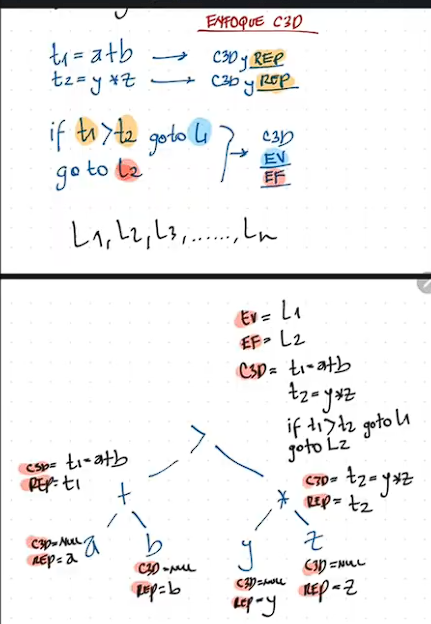 ENFOQUE C3D
t1 = a+b → C3D y REP
t2 = y*z → C3D y REP
if t1>t2 goto L1
go to L2
C3D
EV
EF
L1, L2, L3, ......, Ln
EV = L1
EF = L2
C3D = t1=a+b
t2=y*z
if t1>t2 goto L1
goto L2
>
C3D= t1=a+b
REP= t1
+
*
C3D= t2=y*z
REP= t2
C3D=NULL
REP=a
a
b
C3D=NULL
REP=b
y
C3D=NULL
REP=y
z
C3D=NULL
REP=z